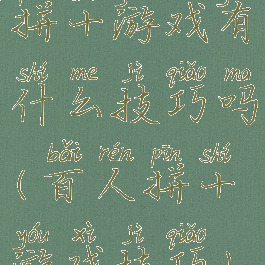 拼十游戏有
shí me jì qiǎo ma
什么技巧吗
bǎi rén pīn shí
(百人拼十
yóu xì jì qiǎo
游戏技巧)